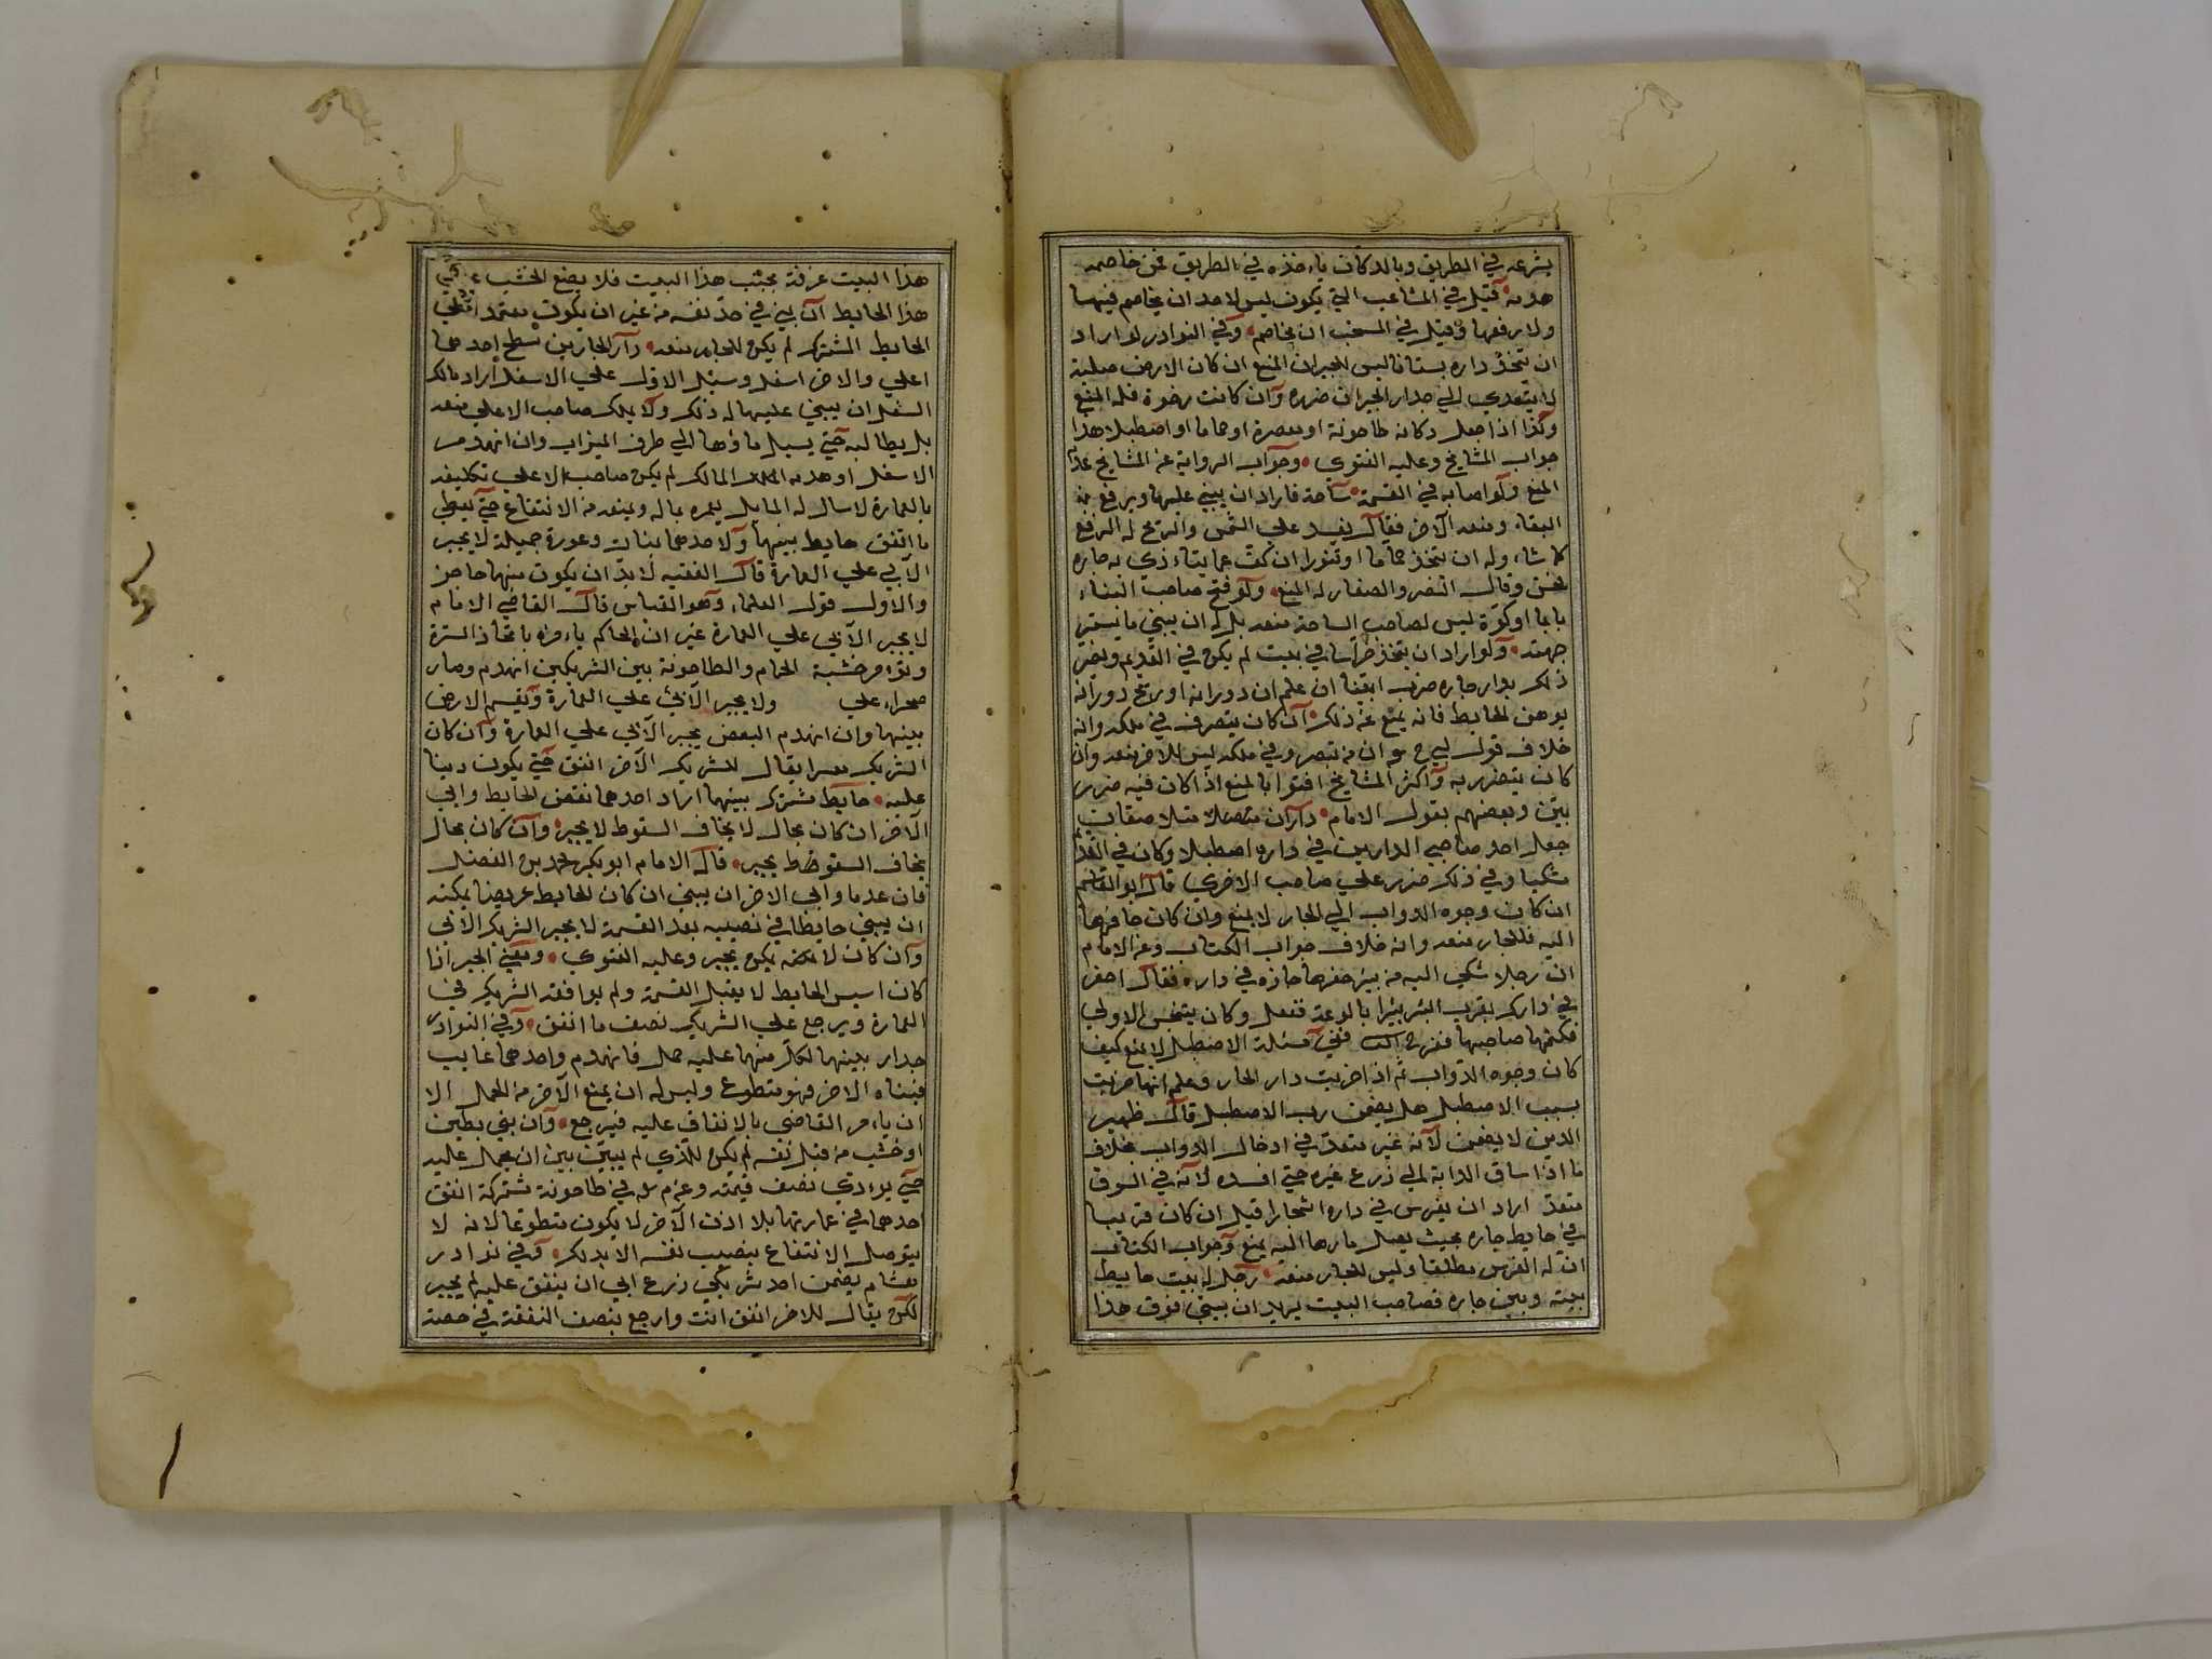 بشرعه في الطريق وبالدكان ياخذه في الطريق فمن خاصمه
هدمه قيل في المشاعب التي يكون ليس لاحد ان يخاصم فيها
ولا يرفعها وقيل في المسخب ان يخاصم وفي النوادر لو اراد
ان تتخذ داره بستانا ليس للجيران المنع ان كان الارض صلبة
لا يتعدي الي جدار الجيران ضرره وان كانت رخوة فله المنع
وكذا اذا جعل دكانه طاحونة او معصرة او حماما او اصطبلا هذا
جواب المشايخ وعليه الفتوي وجواب الرواية عن المشايخ عدم
المنع ولو اصابه في القسمة ساحة فاراد ان يبني عليها ويرفع به
البناء ومنعه الاخر فقال يفسد علي الشمس والريح له الرفع
كما شاء وله ان يتخذ حماما او تنورا ان كف عما يتاءذي به جاره
فحسن وقال النصر والصفار له المنع ولو فتح صاحب البناء
بابا او كوة ليس لصاحب الساحة منعه بل له ان يبني ما يستر
جهته ولو اراد ان يتخذ خراسا في بيت لم يكن في القديم ويضر
ذلك بدار جاره ضررا بينا ان علم ان دورانه او ريح دورانه
يوهن الحايط فانه يمنع عن ذلك ان كان يتصرف في ملكه وانه
خلاف قول ابي ح مع ان من تصرف في ملكه ليس للاخر منعه وان
كان يتضرر به واكثر المشايخ افتوا بالمنع اذا كان فيه ضرر
بين وبعضهم بقول الامام داران متصلة متلاصقان
جعل احد صاحبي الدارين في داره اصطبلا وكان في القديم
مسكنا وفي ذلك ضرر علي صاحب الاخري قال ابو القاسم
ان كان وجوه الدواب الي الجار لا يمنع وان كان حافرها
اليه فللجار منعه وانه خلاف جواب الكتاب وعن الامام
ان رجلا شكي اليه من بير حفرها جاره في داره فقال احفر
في دارك بقرب البئر بئرا بالوعة ففعل وكان يتنجس الاولي
فكبسها صاحبها ففي مسئلة الاصطبل لا يمنع كيف
كان وجوه الدواب ثم اذا خربت دار الجار وعلم انها خربت
بسبب الاصطبل هل يضمن رب الاصطبل قال ظهير
الدين لا يضمن لانه غير متعد في ادخال الدواب بخلاف
ما اذا ساق الدابة الي زرع غيره حتي افسده لانه في السوق
متعد اراد ان يغرس في داره اشجارا قيل ان كان قريبا
في حايط جاره بحيث يصل ضررها اليه يمنع وجواب الكتاب
ان له الغرس مطلقا وليس للجار منعه رجل له بيت حايط
بيته وبين جاره فصاحب البيت يريد ان يبني فوق هذا
هذا البيت غرفة بجنب هذا البيت فلا يضع الخشب علي
هذا الحايط ان بني في حد نفسه من غير ان يكون معتمدا علي
الحايط المشترك لم يكن للجار منعه دار الجارين سطح احدهما
اعلي والاخر اسفل وسيل الاول علي الاسفل اراد مالك
السفل ان يبني عليها له ذلك ولا يملك صاحب الاعلي منعه
بل يطالبه حتي يسيل ماؤها الي طرف الميزاب وان انهدم
الاسفل او هدمه المالك لم يكن صاحب الاعلي تكليفه
بالعمارة لاسال له الما بل يعمره بماله ويمنعه من الانتفاع حتي يعطي
ما انفق حايط بينهما ولاحدهما بنات وعورة جميلة لا يجبر
الآبي علي العمارة قال الفقيه لا بد ان يكون بينهما حاجز
والاول قول العلماء وهو القياس قال القاضي الامام
لا يجبر الآبي علي العمارة غير ان الحاكم ياءمره باتخاذ السترة
ولو من خشبة الحمام والطاحونة بين الشريكين انهدم وصار
صحراء علي ولا يجبر الآبي علي العمارة ويقسم الارض
بينهما وان انهدم البعض يجبر الآبي علي العمارة وان كان
الشريك معسرا يقال للشريك الآخر انفق حتي يكون دينا
عليه حايط مشترك بينهما اراد احدهما نقض الحايط وابي
الآخر ان كان بحال لا يخاف السقوط لا يجبر وان كان بحال
يخاف السقوط يجبر قال الامام ابو بكر محمد بن الفضل
فان هدما وابي الاخر ان يبني ان كان الحايط عريضا يمكنه
ان يبني حايطا في نصيبه بعد القسمة لا يجبر الشريك الآبي
وان كان لا يجبر وعليه الفتوي وتفسير الجبر اذا
كان اسس الحايط لا يقبل القسمة ولم يوافقه الشريك في
العمارة ويرجع علي الشريك نصف ما انفق وفي النوادر
جدار بينهما لكل منهما عليه حمل فانهدم واحدهما غايب
فبناه الاخر فهو متطوع وليس له ان يمنع الآخر من الحمل الا
ان ياءمر القاضي بالانفاق عليه فيرجع وان بني بطين
او خشب من قبل نفسه لم يكن للذي لم يبن ان يحمل عليه
حتي يودي نصف قيمته وعن م له في طاحونة مشتركة انفق
احدهما في عمارتها بلا اذن الآخر لا يكون متطوعا لانه لا
يتوصل الانتفاع بنصيب نفسه الا بذلك وفي نوادر
هشام يضمن احد شريكي زرع ابي ان ينفق عليه لم يجبر
لكن يقال للاخر انفق انت وارجع بنصف النفقة في حصة